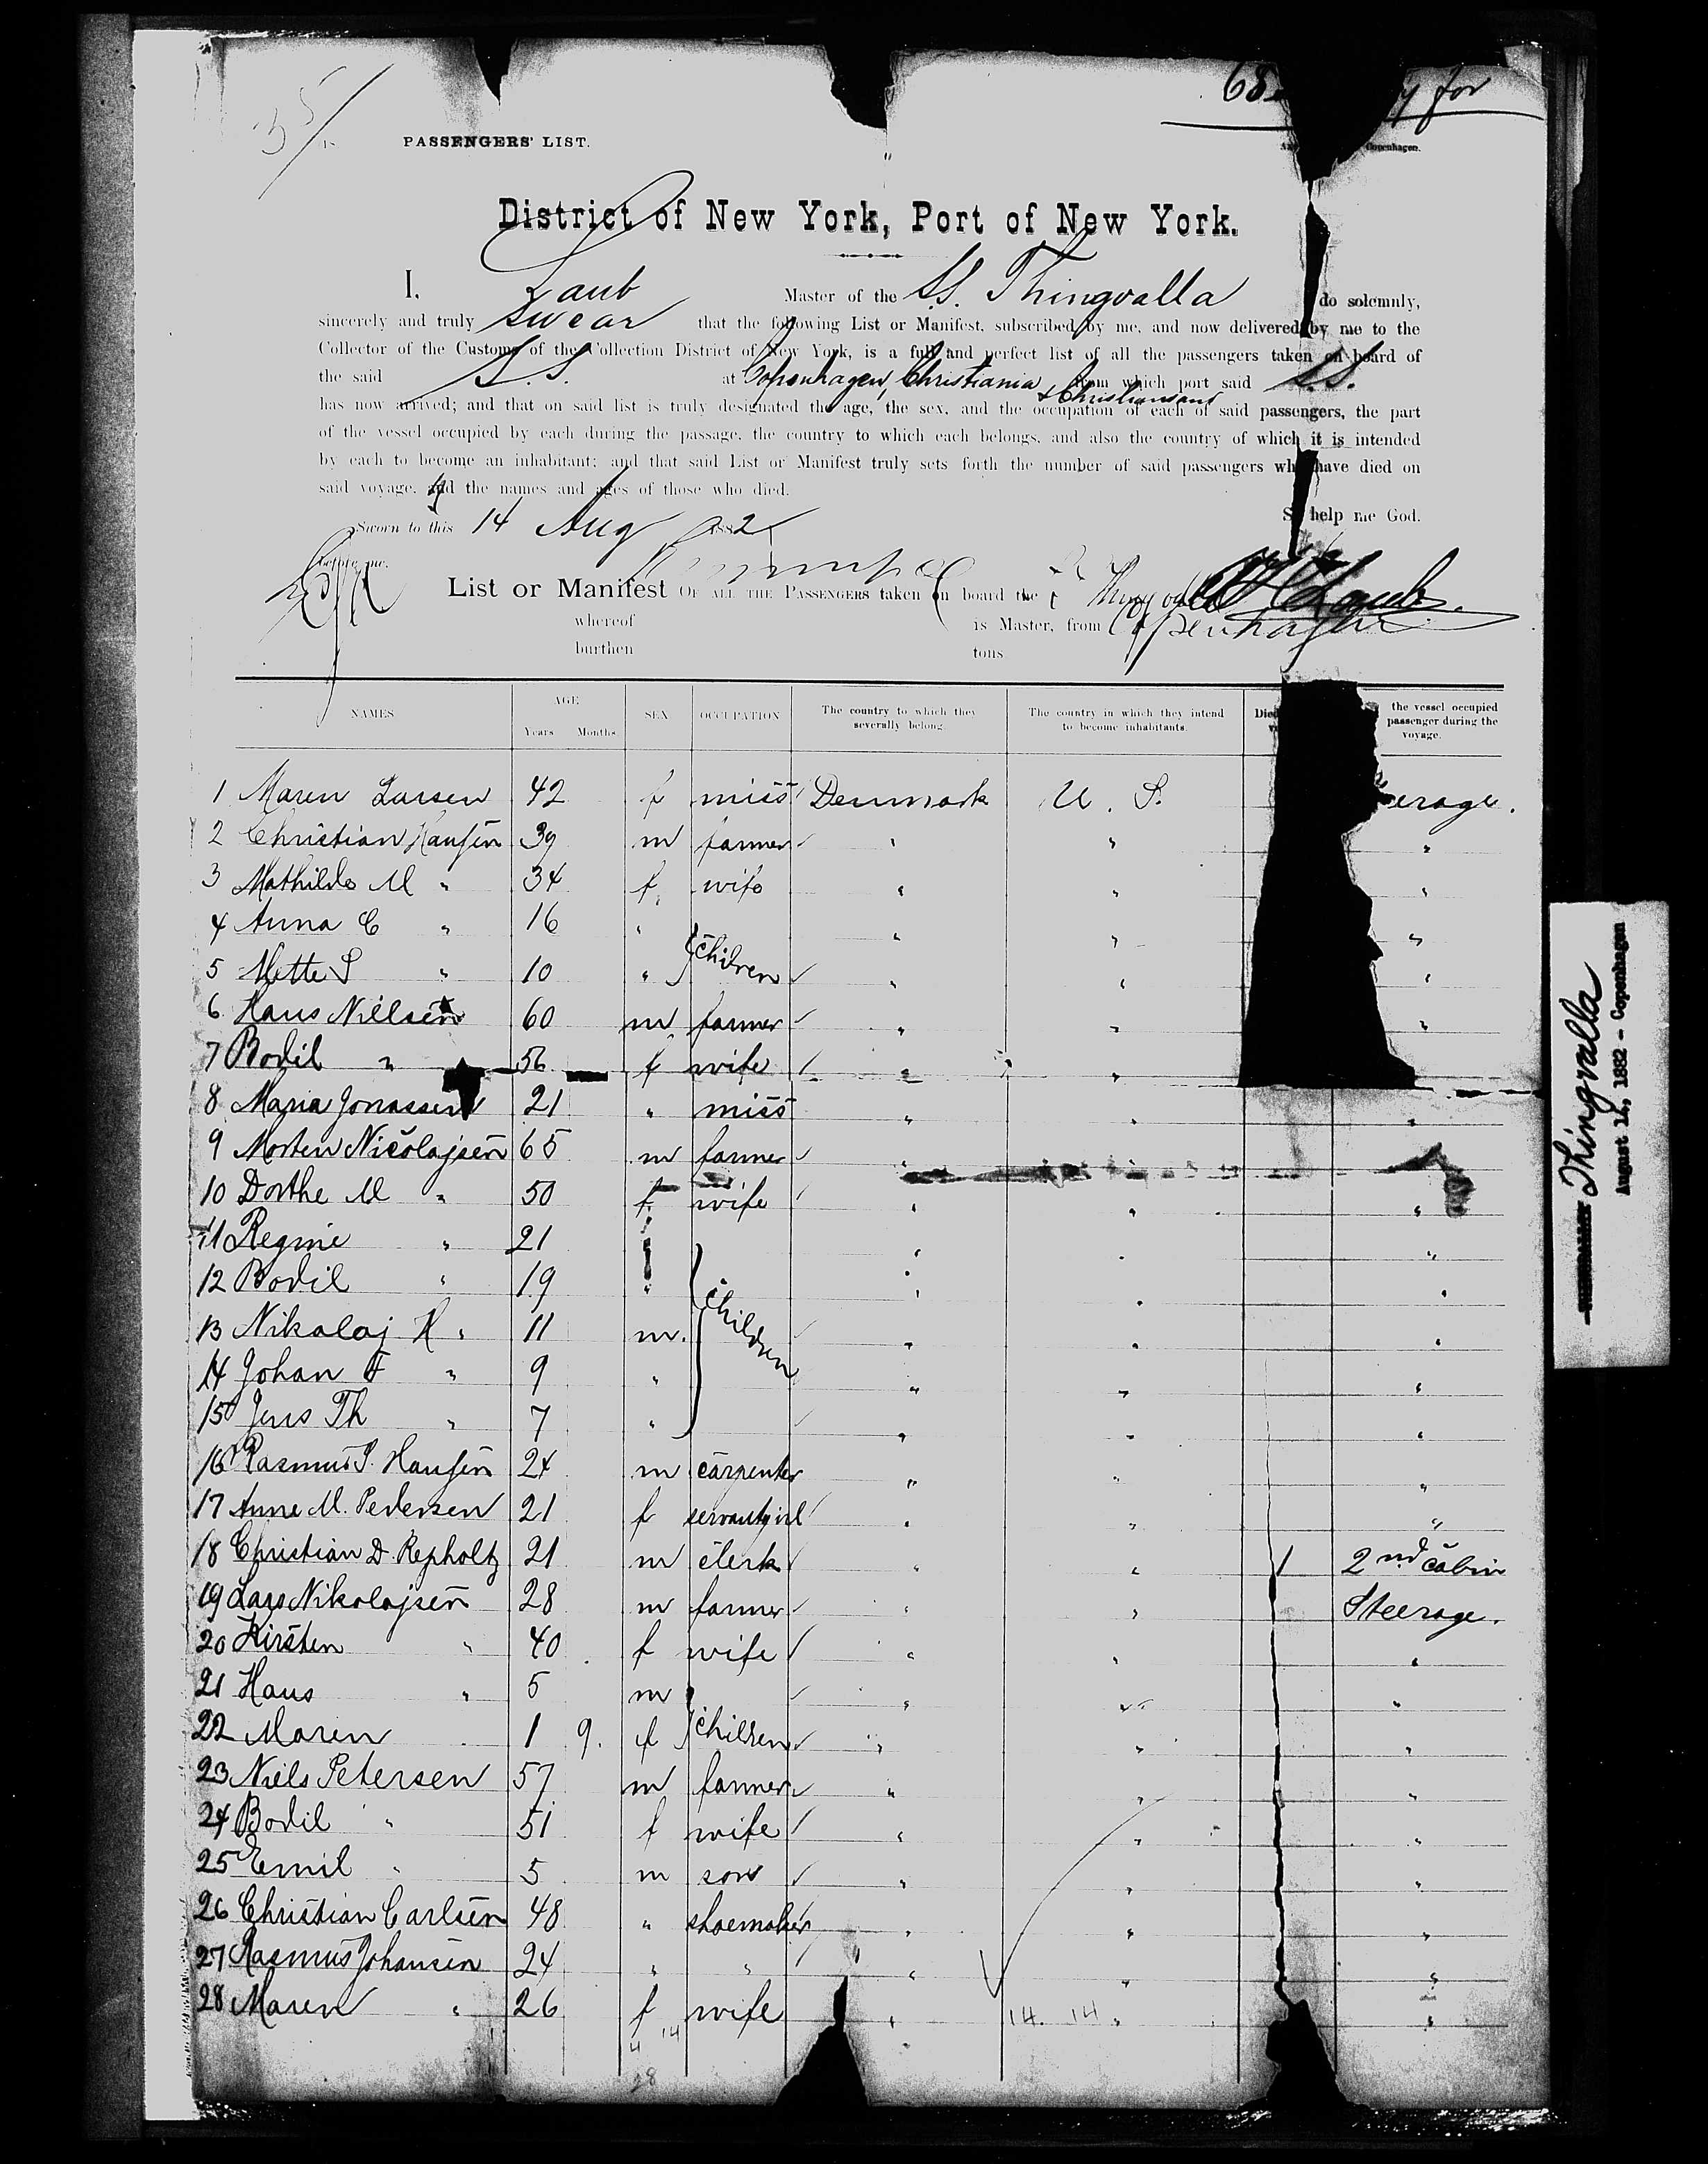 35/
68 y for
PASSENGERS' LIST.
Copenhagen.
District of New York, Port of New York.
I, Laub Master of the SS. Thingvalla do solemnly,
sincerely and truly swear that the following List or Manifest, subscribed by me, and now delivered by me to the
Collector of the Customs of the Collection District of New York, is a full and perfect list of all the passengers taken on board of
the said S.S. at Copenhagen, Christiania & Christiansand from which port said S.S.
has now arrived; and that on said list is truly designated the age, the sex, and the occupation of each of said passengers, the part
of the vessel occupied by each during the passage, the country to which each belongs, and also the country of which it is intended
by each to become an inhabitant; and that said List or Manifest truly sets forth the number of said passengers who have died on
said voyage, and the names and ages of those who died.
So help me God.
Sworn to this 14 Aug 1882
before me.
List or Manifest OF ALL THE PASSENGERS taken on board the Thingvalla
whereof is Master, from Copenhagen
burthen tons
NAMES AGE Years Months. SEX OCCUPATION The country to which they severally belong. The country in which they intend to become inhabitants. Died the vessel occupied passenger during the voyage.
1 Maren Larsen 42 f miss Denmark U. S. erage.
2 Christian Hansen 39 m farmer " " "
3 Mathilde M " 34 f wife " " "
4 Anna C " 16 " children " " "
5 Mette S " 10 " " " "
6 Hans Nielsen 60 m farmer " " "
7 Bodil " 56 f wife " "
8 Maria Jonassen 21 " miss " " "
9 Morten Nicolajsen 65 m farmer "
10 Dorthe M " 50 f wife " " "
11 Regine " 21 " " " "
12 Bodil " 19 " children " " "
13 Nikolaj K " 11 m. " " "
14 Johan F " 9 " " " "
15 Jens Th " 7 " " " "
16 Rasmus P. Hansen 24 m carpenter " " "
17 Anne M. Pedersen 21 f servantgirl " " "
18 Christian D. Repholtz 21 m clerk " " 1 2nd cabin
19 Lars Nikolajsen 28 m farmer " " Steerage.
20 Kirsten " 40 f wife " " "
21 Hans " 5 m children " " "
22 Maren 1 9. f " " "
23 Niels Petersen 57 m farmer " " "
24 Bodil " 51 f wife " " "
25 Emil " 5 m son " " "
26 Christian Carlsen 48 " shoemaker " " "
27 Rasmus Johansen 24 " " " " "
28 Maren " 26 f wife " 14. 14 " "
14
28
Thingvalla
August 14, 1882 - Copenhagen